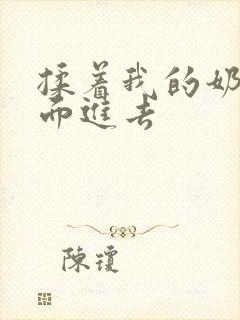 揉着我的奶
而進去
陳瓊